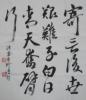 寄言後世
艱難子白日
青天奮臂
行